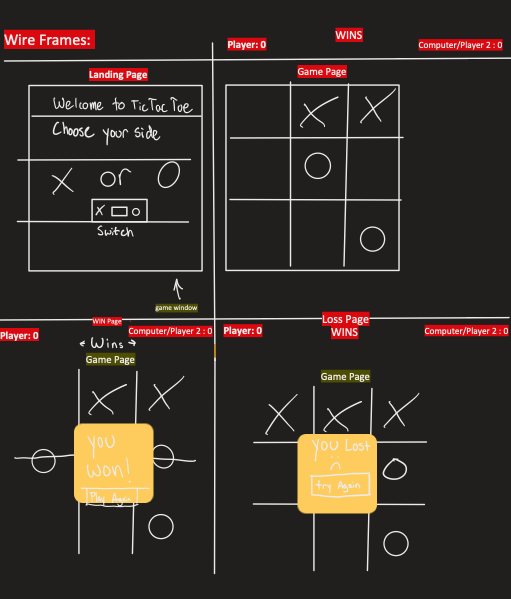 Wire Frames:
Landing Page
Welcome to TicTac Toe
Choose your side
X or O
X O
Switch
game window
WINS
Player: 0
Computer/Player 2 : 0
Game Page
X X
O
O
WIN Page
Player: 0
Computer/Player 2 : 0
Wins
Game Page
X X
you
won!
Play Again
O O
O
Loss Page
WINS
Player: 0
Computer/Player 2 : 0
Game Page
X X X
you Lost
try Again
O
O